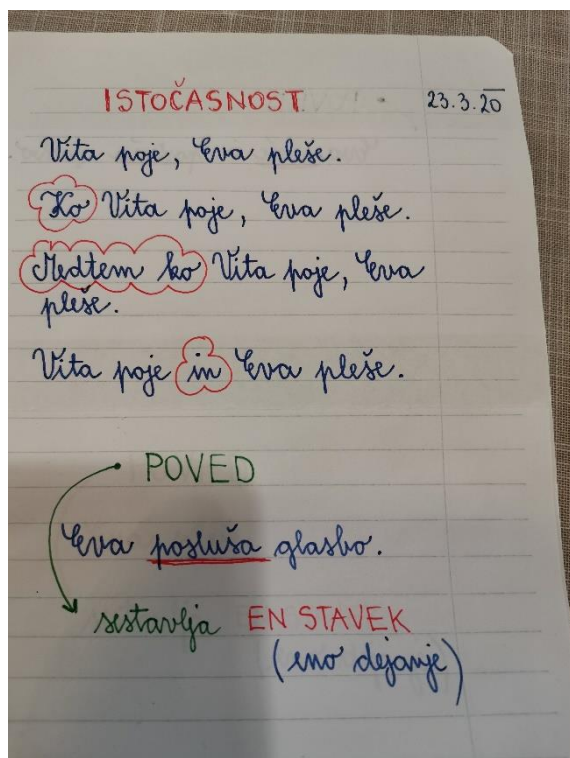 ISTOČASNOST 23.3.20
Vita poje, Eva pleše.
Ko Vita poje, Eva pleše.
Medtem ko Vita poje, Eva
pleše.
Vita poje in Eva pleše.
POVED
Eva posluša glasbo.
sestavlja EN STAVEK
(eno dejanje)